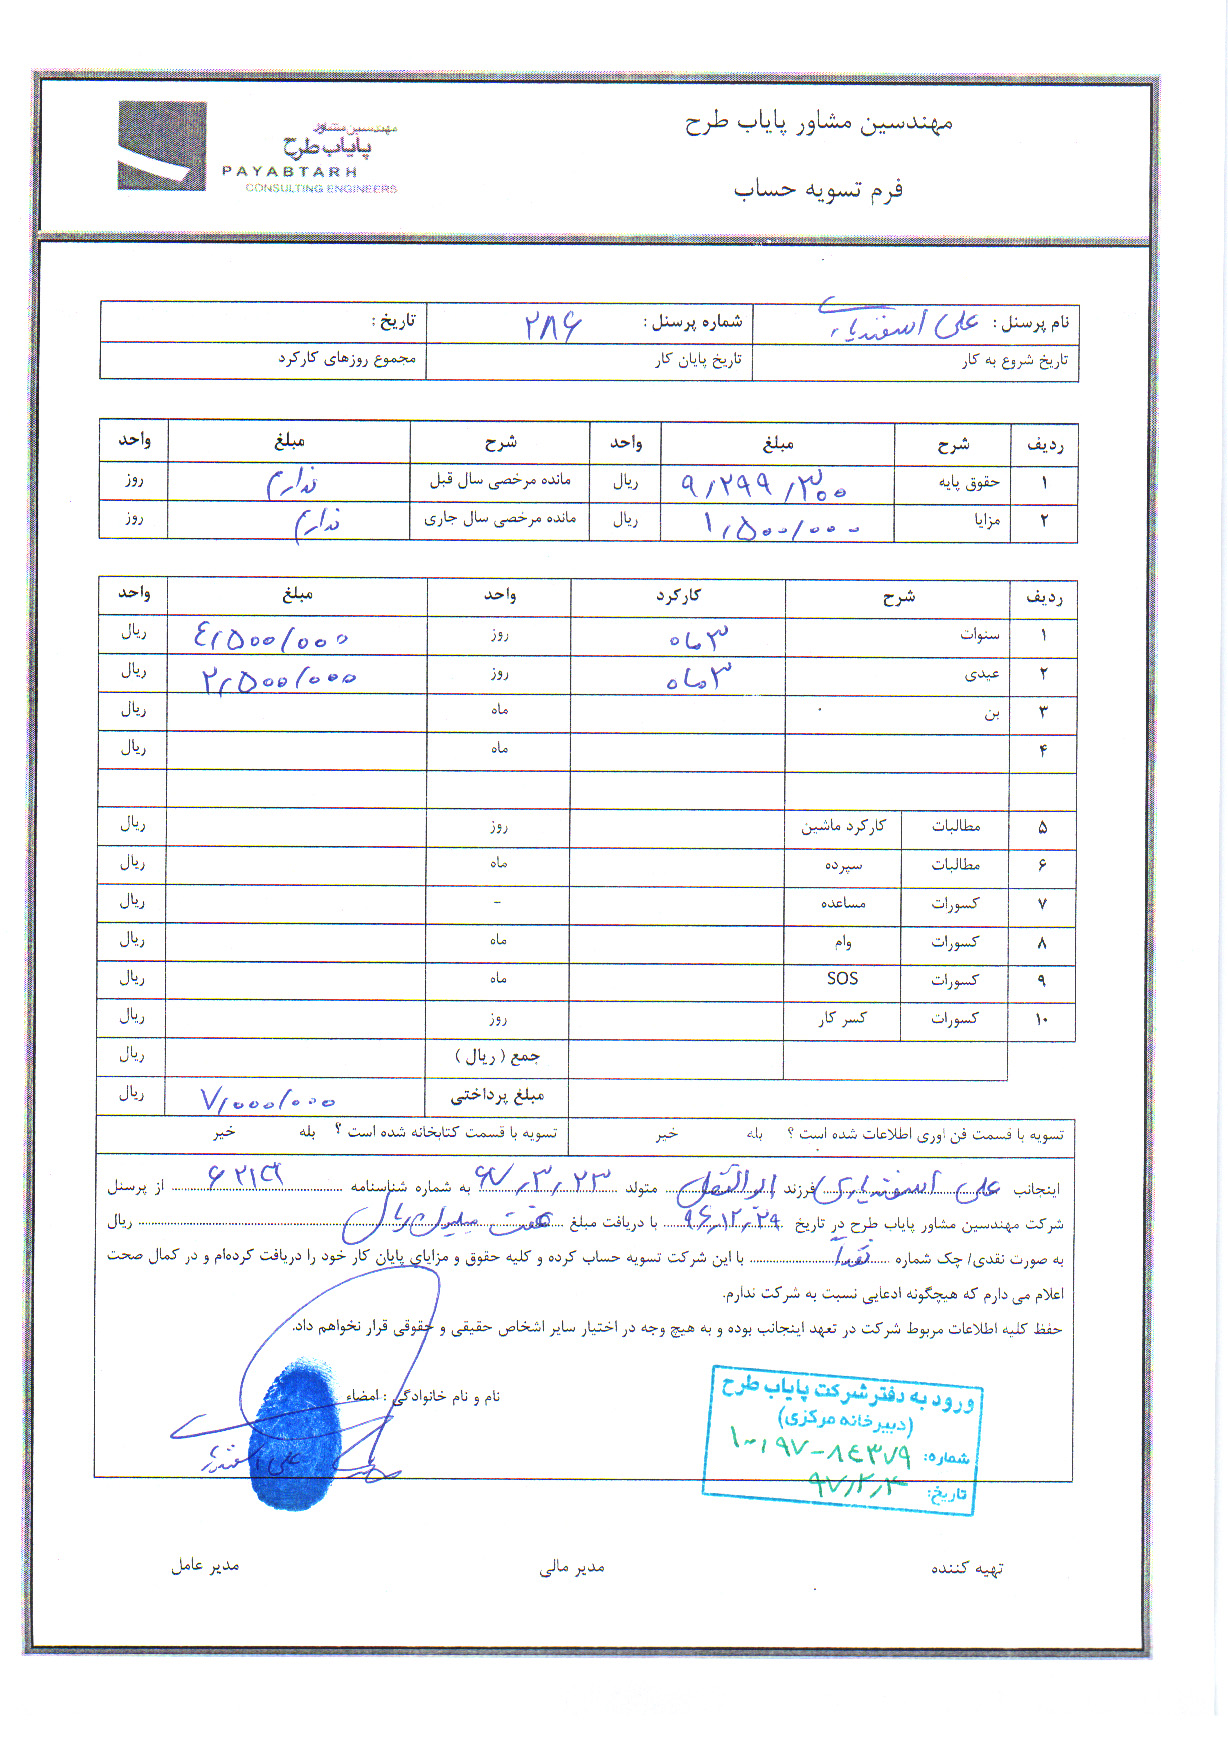 مهندسین مشاور پایاب طرح
مهندسین مشاور
پایاب طرح
PAYABTARH
CONSULTING ENGINEERS
فرم تسویه حساب
نام پرسنل : علی اسفندیاری شماره پرسنل : ۲۸۶ تاریخ :
تاریخ شروع به کار تاریخ پایان کار مجموع روزهای کارکرد
ردیف شرح مبلغ واحد شرح مبلغ واحد
۱ حقوق پایه ۹/۲۹۹/۳۰۰ ریال مانده مرخصی سال قبل ندارم روز
۲ مزایا ۱/۵۰۰/۰۰۰ ریال مانده مرخصی سال جاری ندارم روز
ردیف شرح کارکرد واحد مبلغ واحد
۱ سنوات ۳ ماه روز ٤/۵۰۰/۰۰۰ ریال
۲ عیدی ۳ ماه روز ۲/۵۰۰/۰۰۰ ریال
۳ بن ماه ریال
۴ ماه ریال
۵ مطالبات کارکرد ماشین روز ریال
۶ مطالبات سپرده ماه ریال
۷ کسورات مساعده - ریال
۸ کسورات وام ماه ریال
۹ کسورات SOS ماه ریال
۱۰ کسورات کسر کار روز ریال
جمع ( ریال ) ریال
مبلغ پرداختی ۷/۰۰۰/۰۰۰ ریال
تسویه با قسمت فن اوری اطلاعات شده است ؟ بله خیر تسویه با قسمت کتابخانه شده است ؟ بله خیر
اینجانب علی اسفندیاری فرزند ابوالفضل متولد ۶۷/۳/۲۳ به شماره شناسنامه از پرسنل
شرکت مهندسین مشاور پایاب طرح در تاریخ ۹۶/۱۲/۲۹ با دریافت مبلغ هفت میلیون ریال ریال
به صورت نقدی/ چک شماره نقدا با این شرکت تسویه حساب کرده و کلیه حقوق و مزایای پایان کار خود را دریافت کرده‌ام و در کمال صحت
اعلام می دارم که هیچگونه ادعایی نسبت به شرکت ندارم.
حفظ کلیه اطلاعات مربوط شرکت در تعهد اینجانب بوده و به هیچ وجه در اختیار سایر اشخاص حقیقی و حقوقی قرار نخواهم داد.
نام و نام خانوادگی : امضاء
علی اسفندیاری
ورود به دفتر شرکت پایاب طرح
(دبیرخانه مرکزی)
شماره: ۱۰۰/۹۷-۸٤۳۷۹
تاریخ: ۹۷/۲/۳
تهیه کننده مدیر مالی مدیر عامل